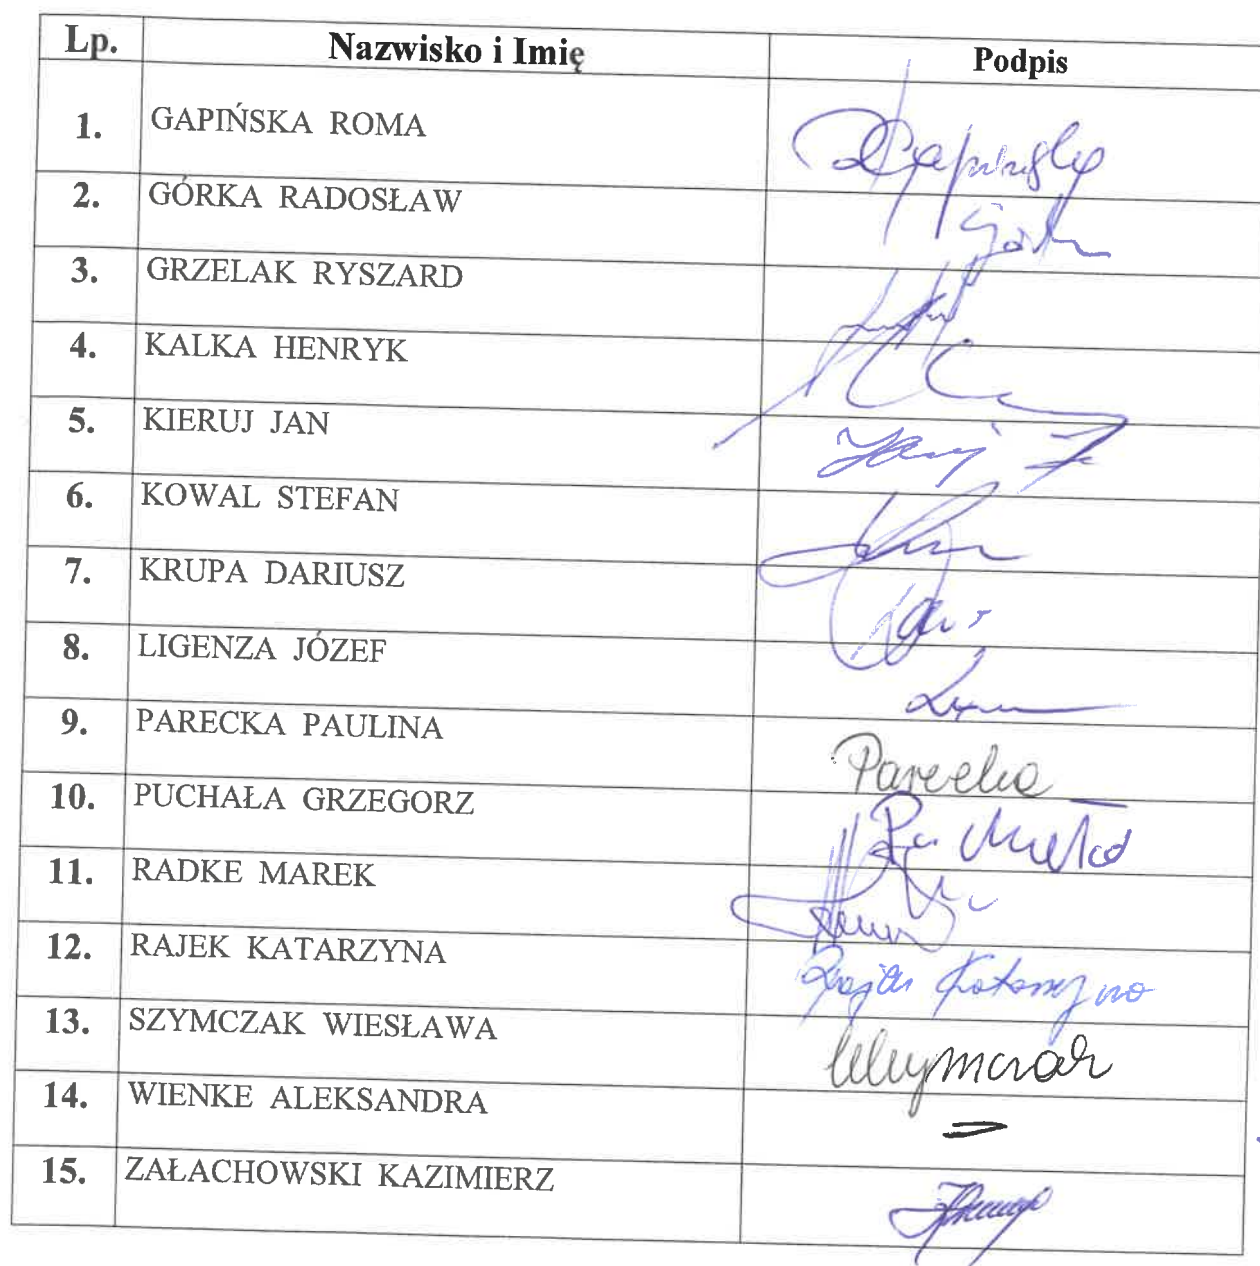 Lp. Nazwisko i Imię Podpis
1. GAPIŃSKA ROMA RGapińska
2. GÓRKA RADOSŁAW
3. GRZELAK RYSZARD
4. KALKA HENRYK
5. KIERUJ JAN
6. KOWAL STEFAN
7. KRUPA DARIUSZ
8. LIGENZA JÓZEF
9. PARECKA PAULINA Parecka
10. PUCHAŁA GRZEGORZ Puchała
11. RADKE MAREK
12. RAJEK KATARZYNA Rajek Katarzyna
13. SZYMCZAK WIESŁAWA
14. WIENKE ALEKSANDRA
15. ZAŁACHOWSKI KAZIMIERZ